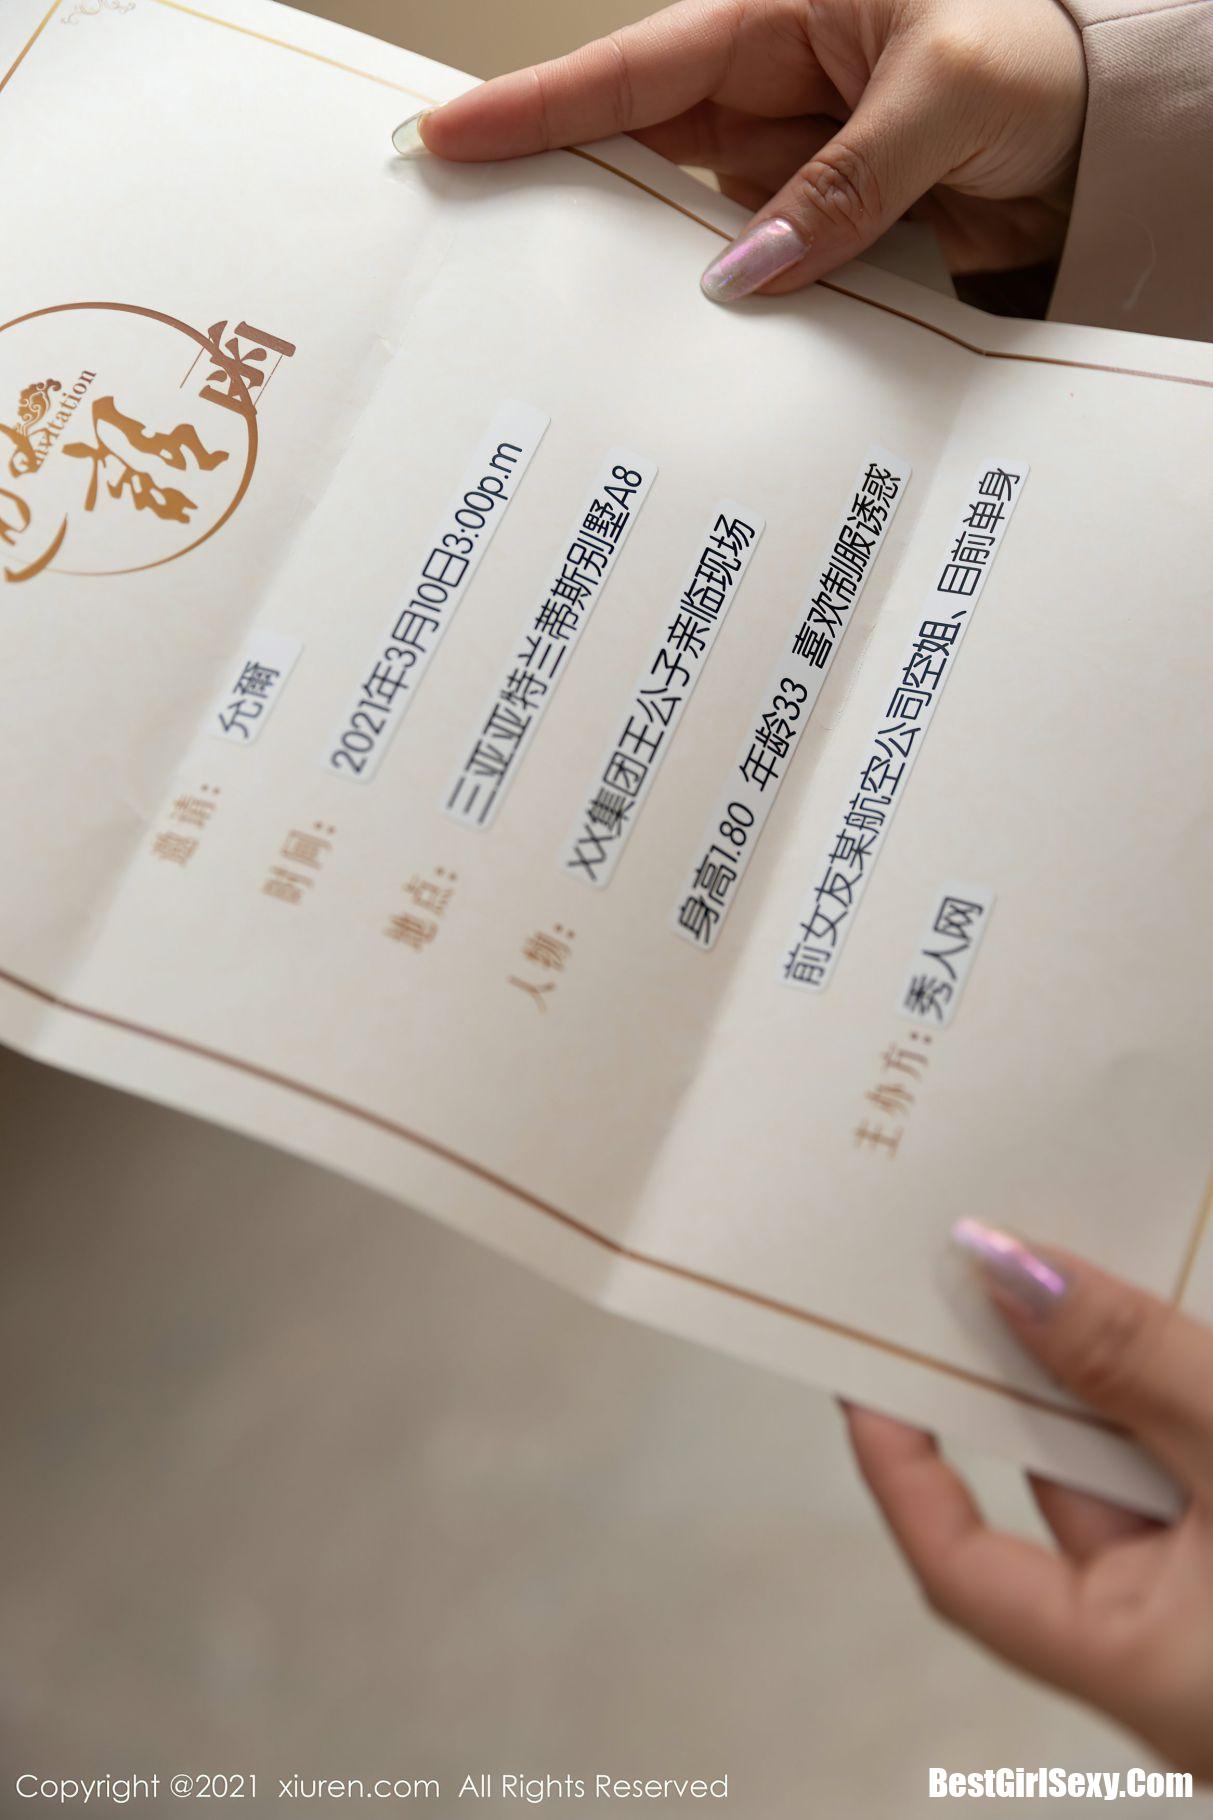 邀请函
Invitation
邀请：允爾
时间：2021年3月10日3:00p.m
地点：三亚亚特兰蒂斯别墅A8
人物：XX集团王公子亲临现场
身高1.80 年龄33 喜欢制服诱惑
前女友某航空公司空姐、目前单身
主办方：秀人网
Copyright @2021 xiuren.com All Rights Reserved
BestGirlSexy.Com